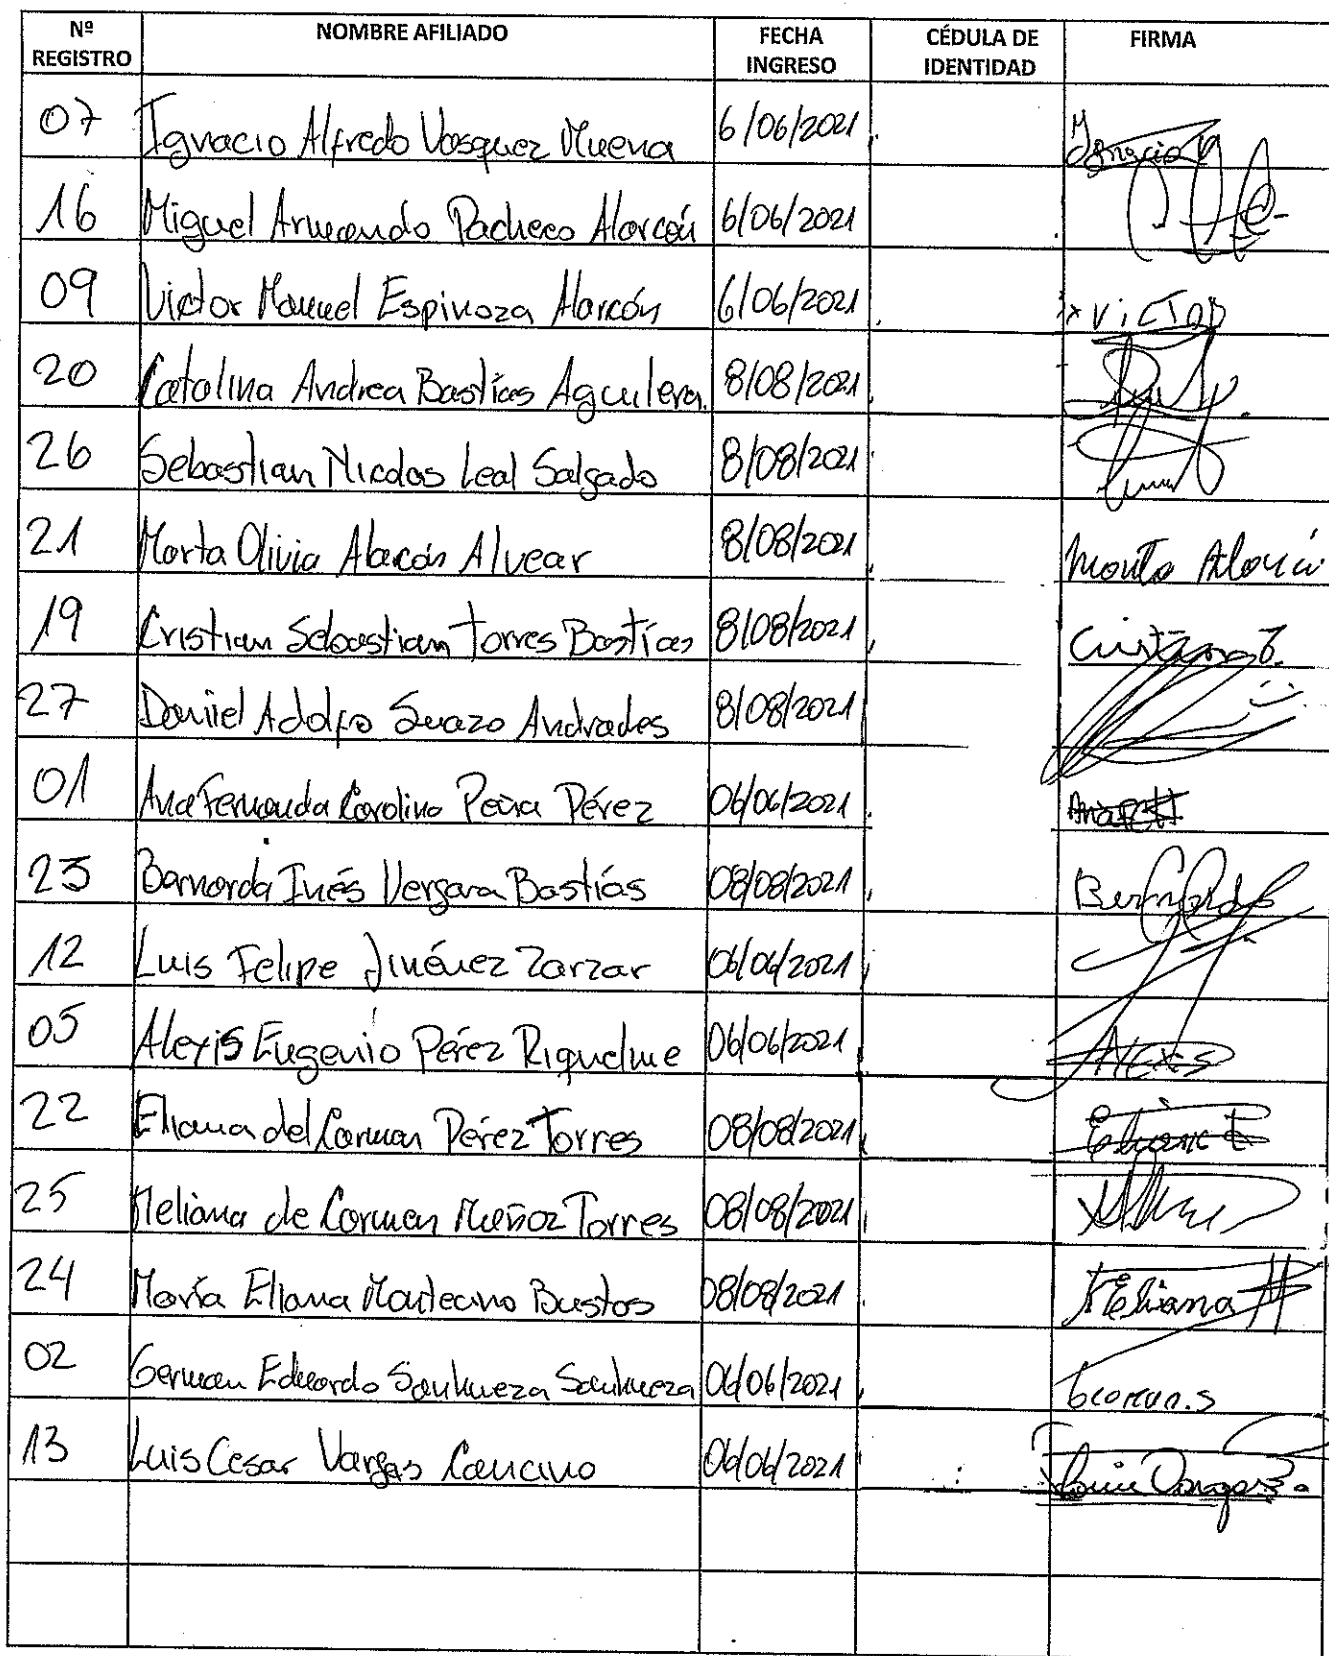 Nº REGISTRO NOMBRE AFILIADO FECHA INGRESO CÉDULA DE IDENTIDAD FIRMA
07 Ignacio Alfredo Vasquez 6/06/2021 Ignacio
16 Miguel Armando Pacheco Alarcón 6/06/2021
09 Victor Manuel Espinoza Alarcón 6/06/2021 VICTOR
20 Catalina Andrea Bastías Aguilera. 8/08/2021
26 Sebastian Nicolas Leal Salgado 8/08/2021
21 Marta Olivia Alarcón Alvear 8/08/2021
19 Cristian Sebastian Torres Bastías 8/08/2021
27 Daniel Adolfo Suazo Andrades 8/08/2021
01 Ana Fernanda Carolina Peña Pérez 06/06/2021
23 Barnarda Inés Vergara Bastías 08/08/2021 Bernarda
12 Luis Felipe Jiménez Zarzar 06/06/2021
05 Alexis Eugenio Pérez Riquelme 06/06/2021 Alexis
22 Eliana del Carmen Pérez Torres 08/08/2021
25 Meliana de Carmen Muñoz Torres 08/08/2021
24 María Eliana Montecino Bustos 08/08/2021 Eliana
02 German Eduardo Sanhueza Sanhueza 06/06/2021
13 Luis Cesar Vargas Cancino 06/06/2021